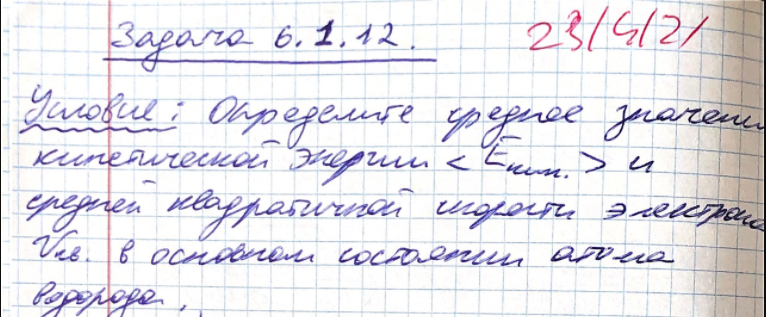 Задача 6.1.12. 23/4/21
Условие: Определите среднее значени
кинетической энергии <Eкин.> и
средней квадратичной скорости электрона
Vкв. в основном состоянии атома
водорода.